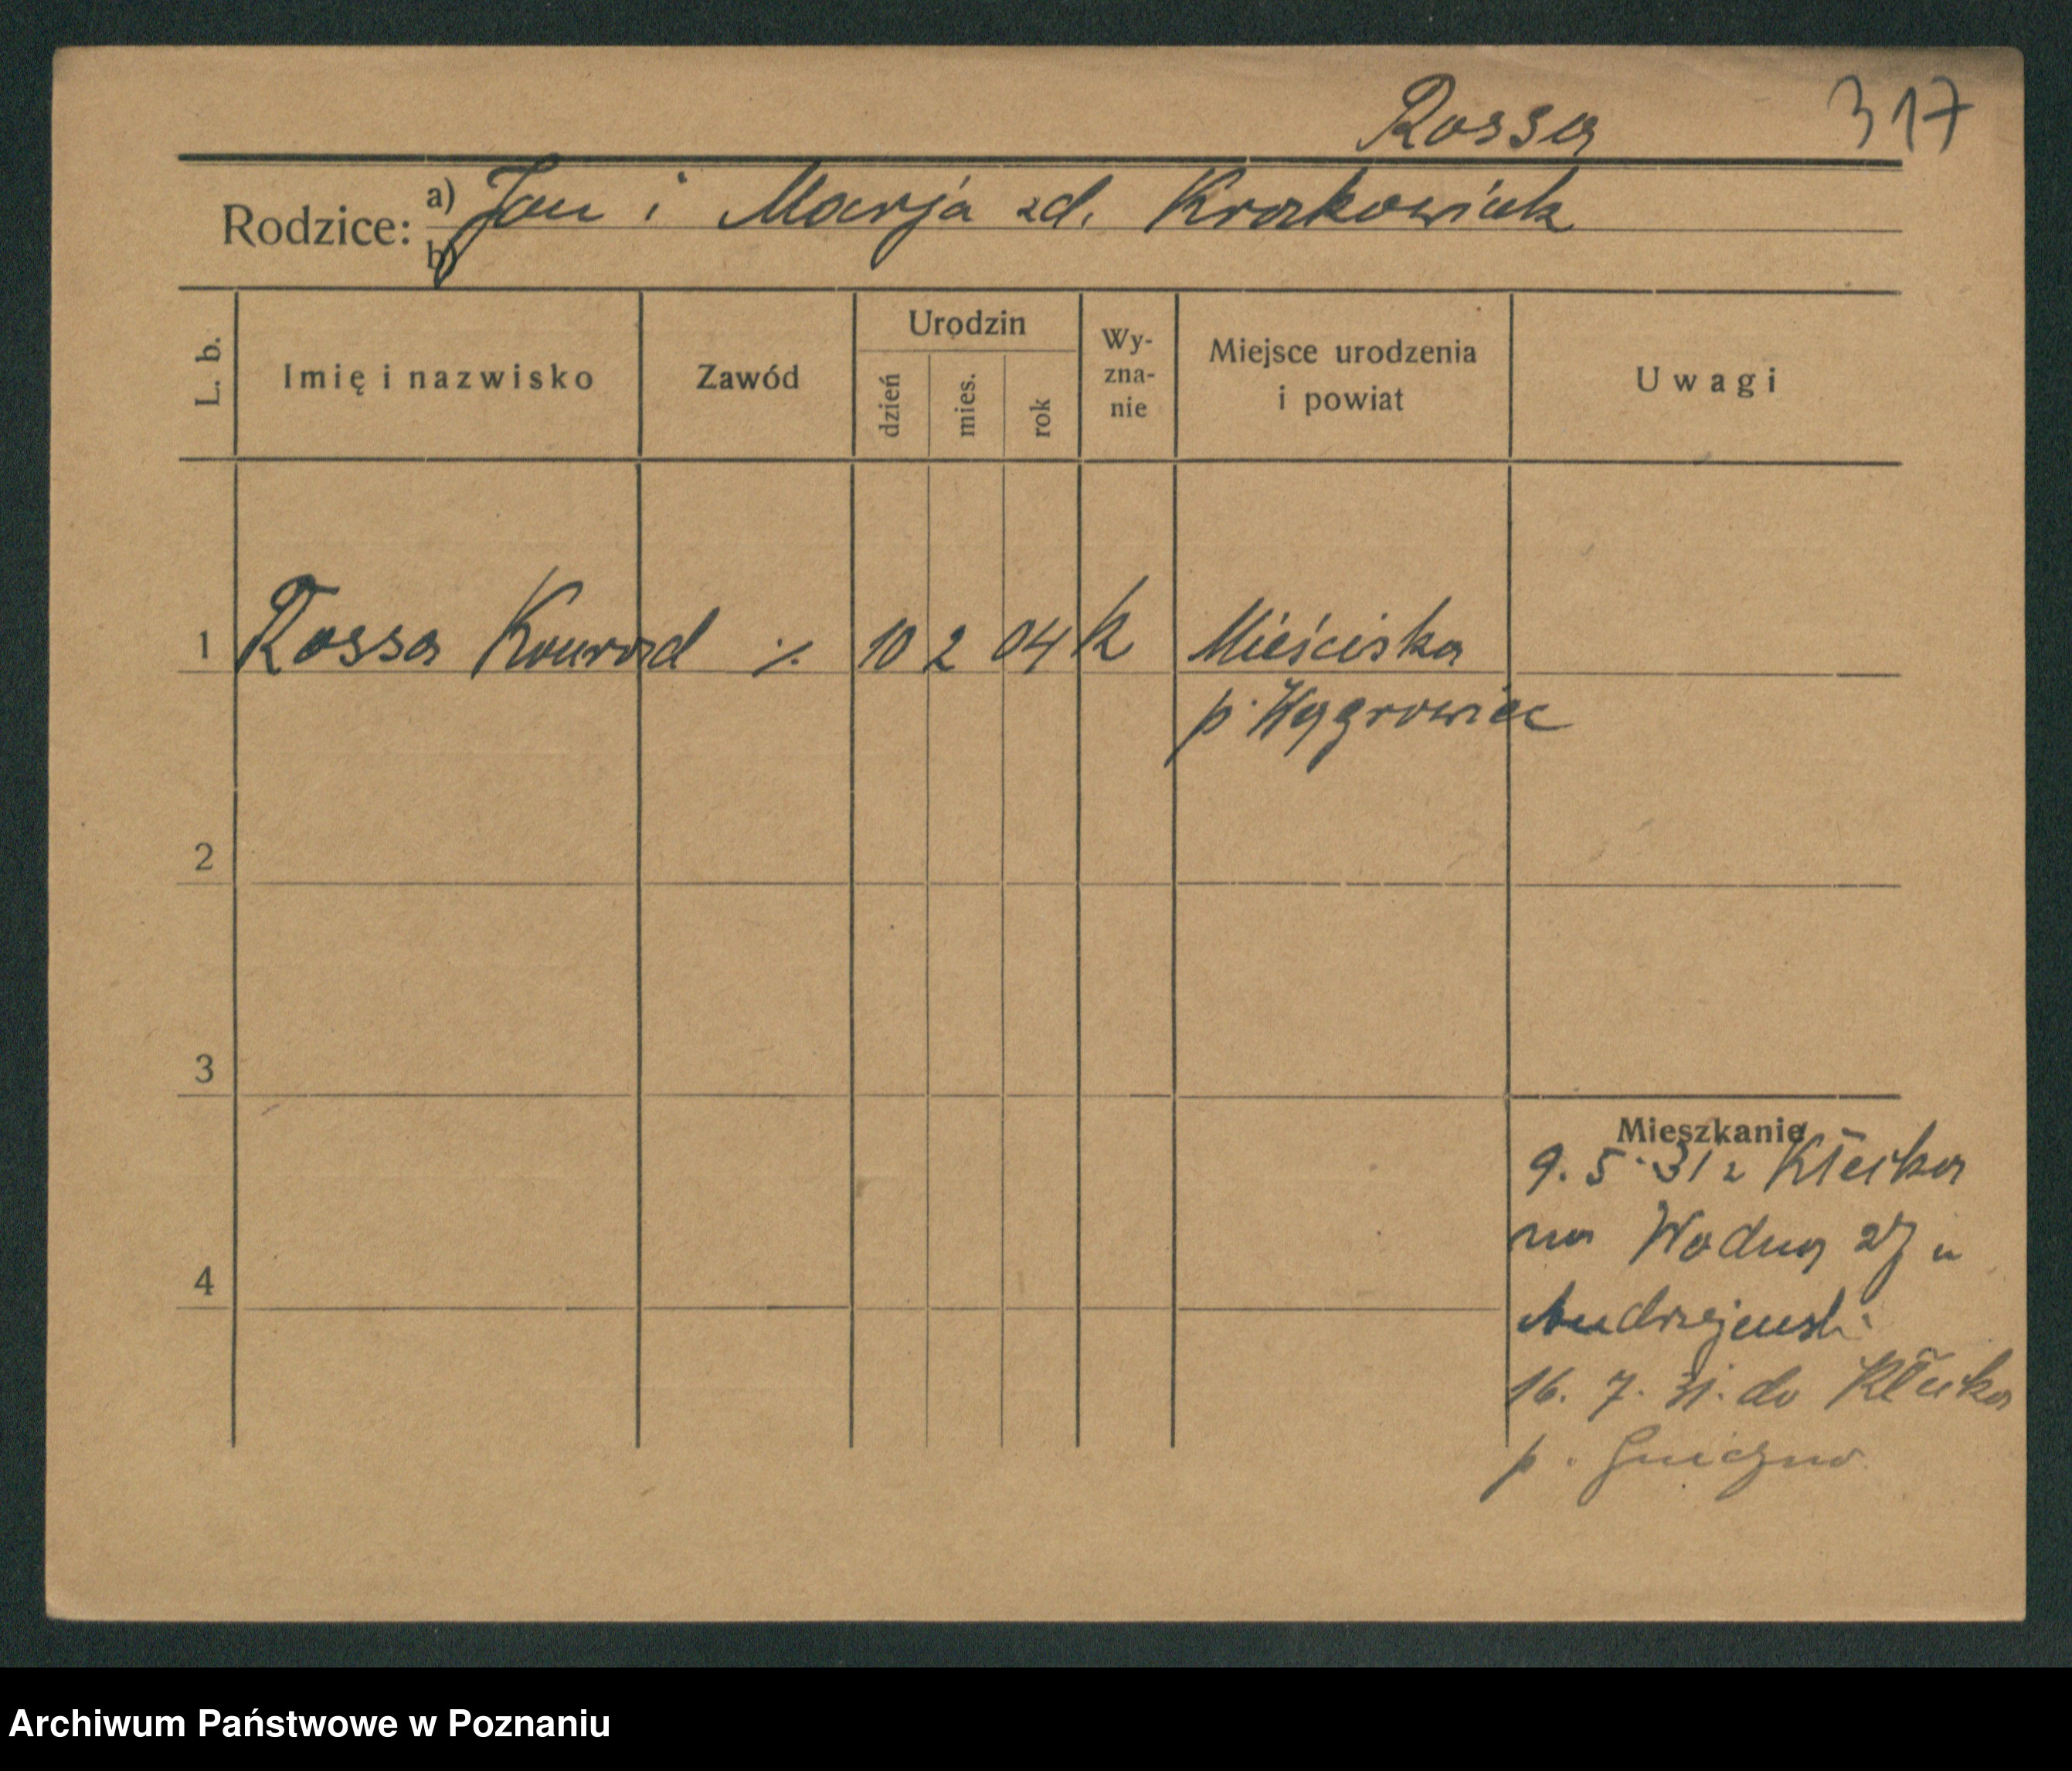 Rossa 317
Rodzice: a) Jan i Marja zd. Krakowiak
b)
L. b. Imię i nazwisko Zawód Urodzin dzień mies. rok Wy-zna-nie Miejsce urodzenia i powiat Uwagi
1 Rossa Konrad ·/. 10 2 04 k Mieściska
p. Wągrowiec
2
3
4
Mieszkanie
9. 5. 31 z Kłecka
na Wodną 27 u
Andrzejewski
16. 7. 31. do Kłecka
p. Gniezno
Archiwum Państwowe w Poznaniu